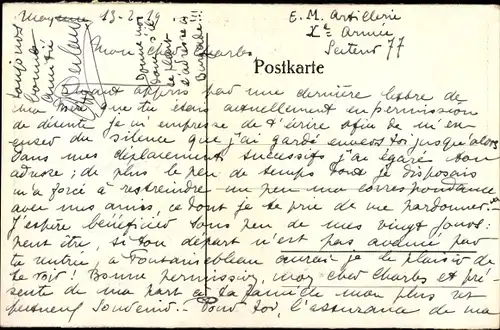 Mayence 13-2-19
E. M. Artillerie
Xe Armée
Secteur 77
Mon cher Charles
Postkarte
Ayant appris par une dernière lettre de
ma mère que tu étais actuellement en permission
de détente je m'empresse de t'écrire afin de m'en-
cuser du silence que j'ai gardé envers toi jusqu'alors
Dans mes déplacements successifs j'ai égaré ton
adresse; de plus le peu de temps dont je disposais
m'a forcé à restreindre un peu ma correspondance
avec mes amis, ce dont je te prie de me pardonner. -
J'espère bénéficier sous peu de mes vingt jours:
peut être, si ton départ n'est pas avancé par
te autrui, à Fontainebleau aurai-je le plaisir de
te voir! Bonne permission, mon cher Charles et pré-
sente de ma part à ta famille mon plus res-
pectueux souvenir. - Pour toi, l'assurance de ma
toujours
bonne
amitié
Donne moi
l'adresse de